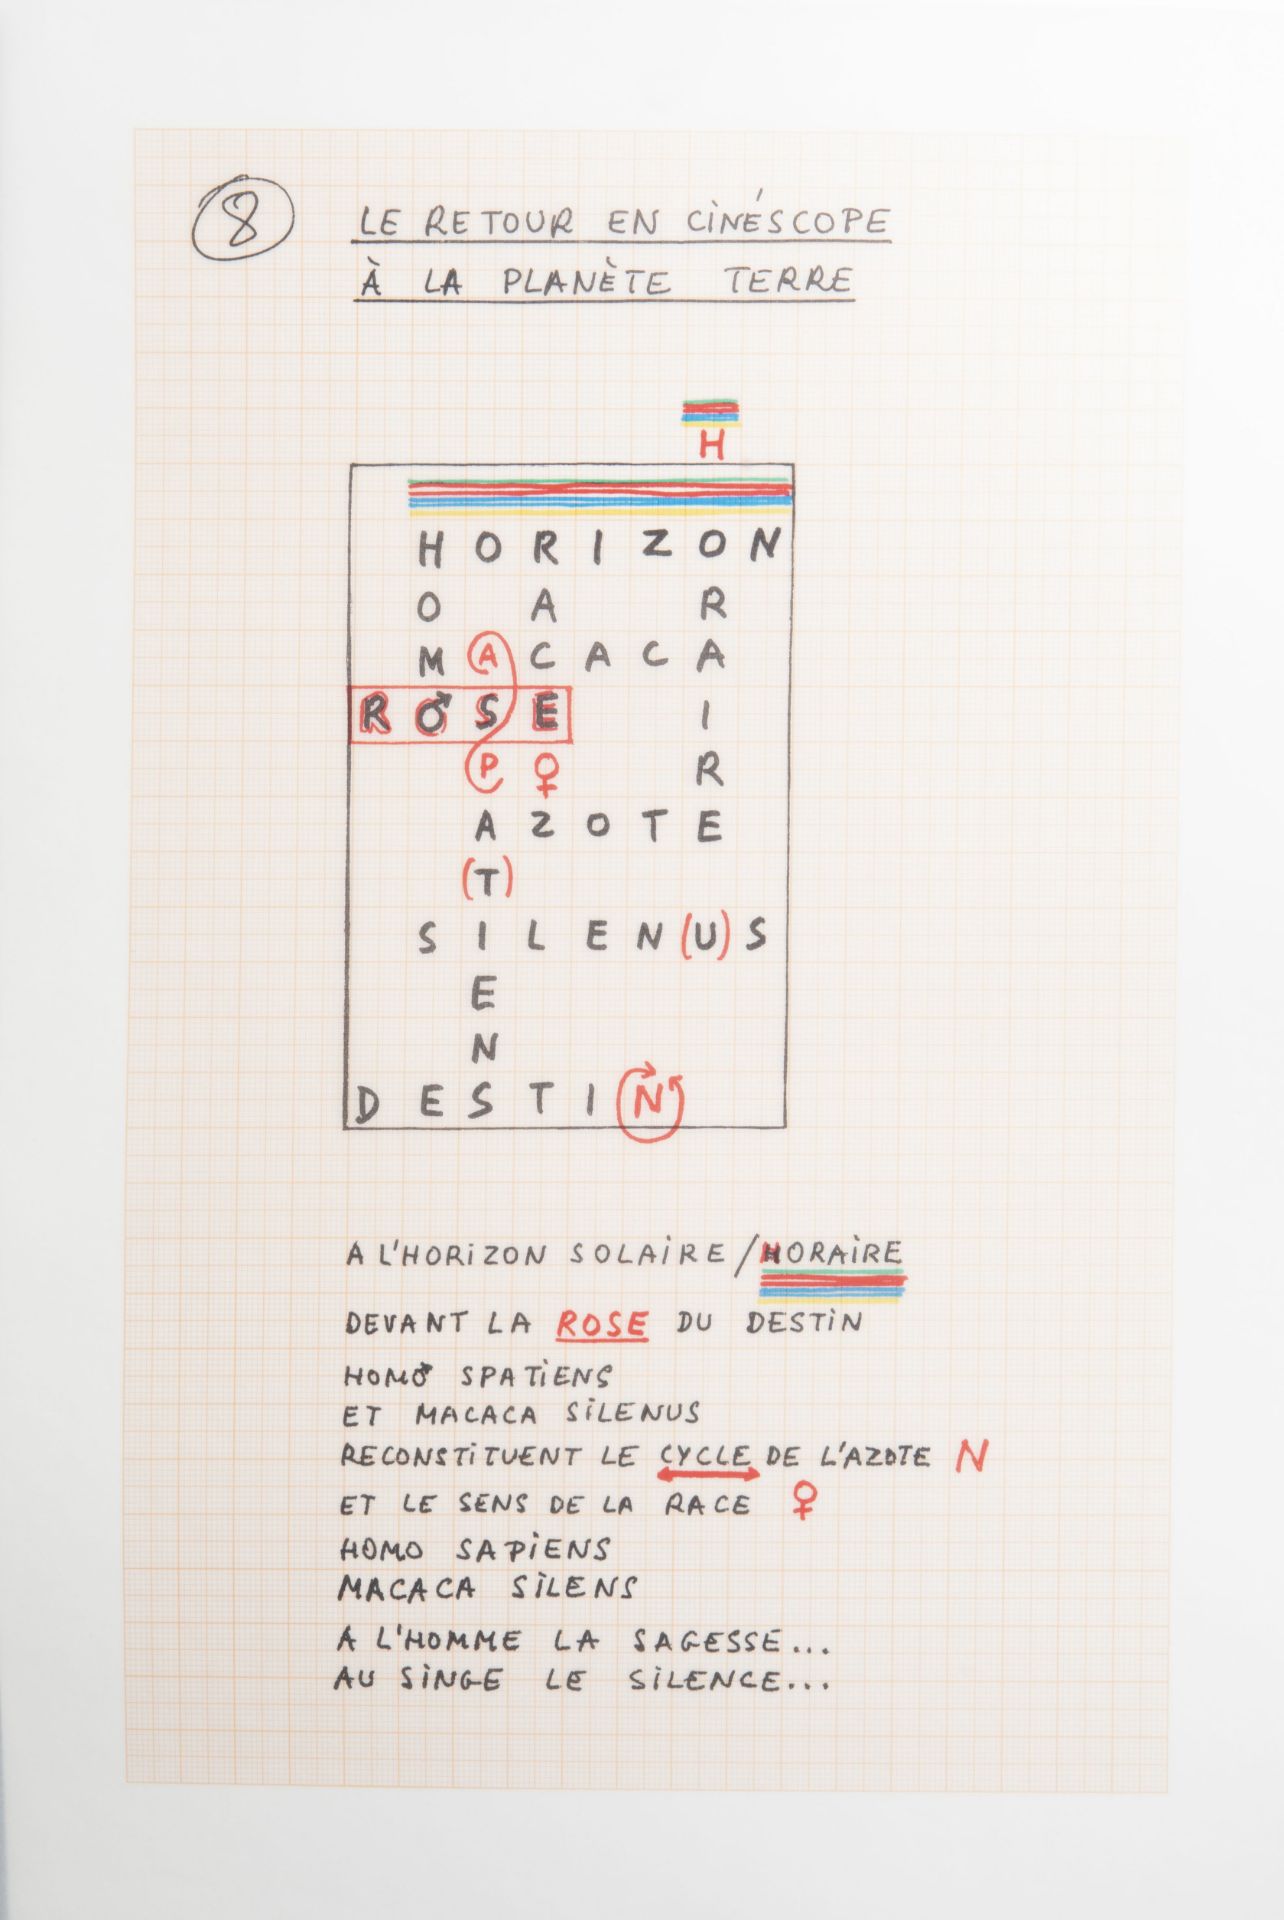 8
LE RETOUR EN CINÉSCOPE
À LA PLANÈTE TERRE
H
HORIZON
O A R
M A C A C A
R♂SE I
P ♀ R
AZOTE
(T)
SILEN(U)S
E
N
DESTIN
A L'HORIZON SOLAIRE / HORAIRE
DEVANT LA ROSE DU DESTIN
HOM♂ SPATIENS
ET MACACA SILENUS
RECONSTITUENT LE CYCLE DE L'AZOTE N
ET LE SENS DE LA RACE ♀
HOMO SAPIENS
MACACA SILENS
A L'HOMME LA SAGESSE...
AU SINGE LE SILENCE...